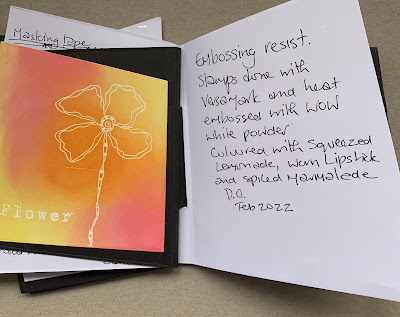 Masking tape
Flower
Embossing resist.
Stamps done with
Versamark and heat
embossed with WOW
white powder
Coloured with Squeezed
Lemonade, Worn Lipstick
and Spiced Marmalade
D.O.
Feb 2022